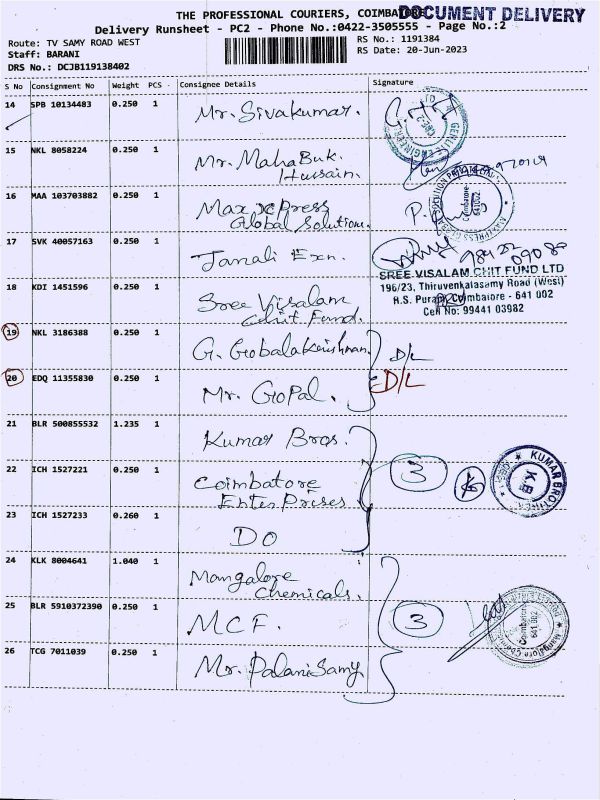 THE PROFESSIONAL COURIERS, COIMBATORE
DOCUMENT DELIVERY
Delivery Runsheet - PC2 - Phone No.:0422-3505555 - Page No.:2
Route: TV SAMY ROAD WEST
RS No.: 1191384
Staff: BARANI
RS Date: 20-Jun-2023
DRS No.: DCJB119138402
S No Consignment No Weight PCS Consignee Details Signature
14 SPB 10134483 0.250 1 Mr. Sivakumar.
15 NKL 8058224 0.250 1 Mr. MahaBuk.
Hussain.
16 MAA 103703882 0.250 1 Max xPress
Global Solution.
17 SVK 40057163 0.250 1 Janali Exn.
98422
09089
SREE VISALAM CHIT FUND LTD
196/23, Thiruvenkatasamy Road (West)
R.S. Puram, Coimbatore - 641 002
Cell No: 99441 03982
18 KDI 1451596 0.250 1 Sree Visalam
Chit Fund.
19 NKL 3186388 0.250 1 G. Gobalakrishnan.
D/L
20 EDQ 11355830 0.250 1 Mr. GoPal.
D/L
21 BLR 500855532 1.235 1 Kumar Bros.
22 ICH 1527221 0.250 1 Coimbatore
EnterPrises
3
KUMAR BROTHERS
K.B
23 ICH 1527233 0.260 1 DO
24 KLK 8004641 1.040 1 Mangalore
Chemicals.
25 BLR 5910372390 0.250 1 MCF.
3
Coimbatore
641 002
26 TCG 7011039 0.250 1 Mr. PalaniSamy